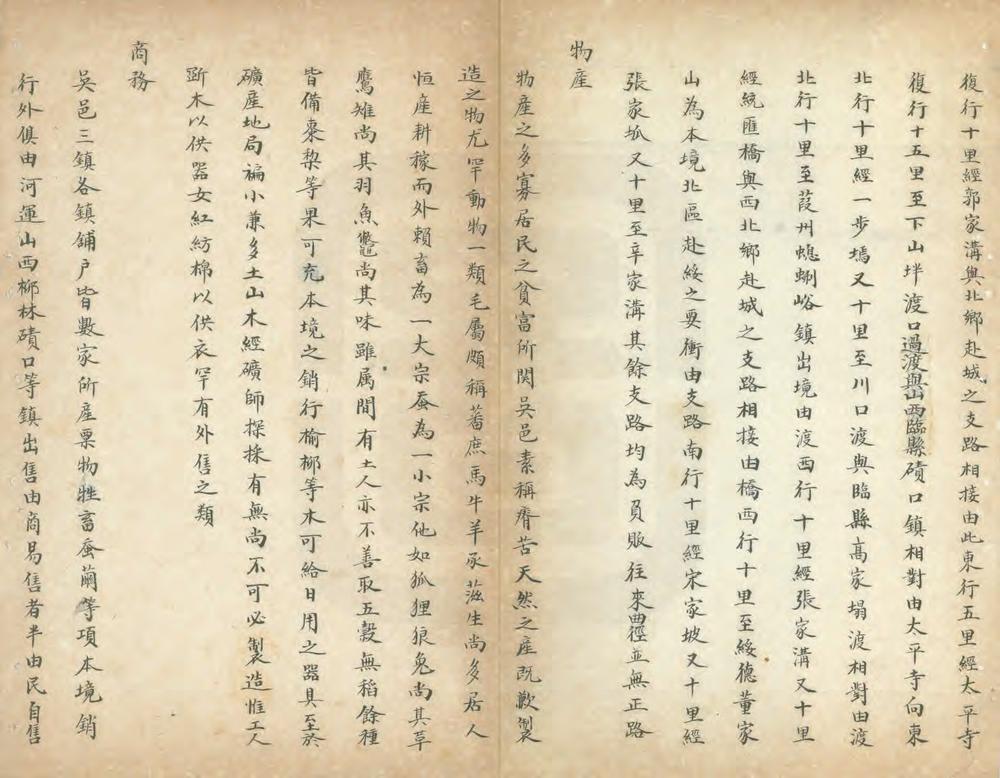 復行十里經郭家溝與北鄉赴城之支路相接由此東行五里經太平寺
復行十五里至下山坢渡口過渡與山西臨縣磧口鎮相對由太平寺向東
北行十里經一步墕又十里至川口渡與臨縣高家塌渡相對由渡
北行十里至葭州螅蜊峪鎮出境由渡西行十里經張家溝又十里
經統匯橋與西北鄉赴城之支路相接由橋西行十里至綏德董家
山為本境北區赴綏之要衝由支路南行十里經宋家坡又十里經
張家坬又十里至辛家溝其餘支路均為負販往來曲徑並無正路
物産
物産之多寡居民之貧富所関吳邑素稱瘠苦天然之産既歉製
造之物尤罕動物一類毛屬頗稱蕃庶馬牛羊豕滋生尚多居人
恒産耕稼而外賴畜為一大宗蚕為一小宗他如狐狸狼兔尚其草
鷹雉尚其羽魚鼈尚其味雖属間有土人亦不善取五穀無稻餘種
皆備棗棃等果可充本境之銷行榆栁等木可給日用之器具至於
礦産地局褊小兼多土山木經礦師探採有無尚不可必製造惟工人
斵木以供器女紅紡棉以供衣罕有外售之類
商務
吳邑三鎮各鎮舖户皆數家所産粟物牲畜蚕繭等項本境銷
行外俱由河運山西栁林磧口等鎮出售由商易售者半由民自售